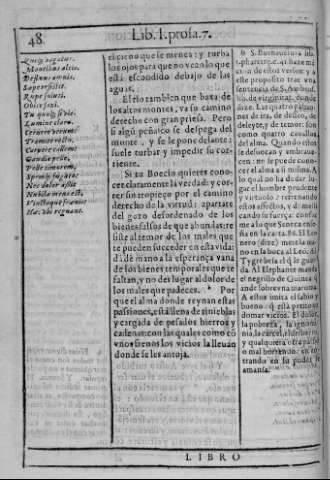 48.
Lib. I. prosa. 7.
Qui &
Montibus altis
Defluus amnis,
Sæpe resistit
Rupe soluti
Obice saxi.
Tu quoq; si vis
Lumine claro
Cernere verum:
Tramite recto
Carpere callem:
Gaudia pelle,
Pelle timorem,
Spemq; fugato:
Nec dolor adsit
Nubila mens est,
Vinctaque frænis
Hæc vbi regnant.
el cieno que se menea: y turba
los ojos para que no vean lo que
está escondido debajo de las
aguas.
El rio tambien que baxa de
los altos montes, va su camino
derecho con gran priesa. Pero
si algũ peñasco se despega del
monte, y se le pone delante:
suele turbar y impedir su cor-
riente.
Si tu Boecio quieres cono-
cer claramente la verdad: y cor-
rer sin tropieço por el camino
derecho de la virtud: apartate
del gozo desordenado de los
bienes falsos de que abundaste:
siste al temor de los males que
te pueden succeder en esta vida:
dá de mano a la esperança vana
de los bienes temporales que te
faltan, y no des lugar al dolor de
los males que padeces. Por
que el alma donde reynan estas
passiones, está llena de tinieblas
y cargada de pesados hierros y
cadenas: con las quales como có
vnos frenos los vicios la lleuan
donde se les antoja.
h S. Buenauentura
mẽ
cion de estos versos: y a
este proposito trae vna
sentencia de S. Ambro-
sio, de virginitat.
de dize. Que las
nas de ira, de desseo, de
deleyte, y de temor: son
como quatro cauallos
del alma. Quando ellos
se desbocan y embraue-
cen: no se puede cono-
cer el alma a si misma. A
lo qual no ha de dar lu-
gar el hombre prudente
y virtuoso: refrenando
estos effectos, y
cando su fuerça: confor
me a lo que Seneca enseña
en la carta. 86. El Leo-
nero (dize) mete la ma-
no en la boca al Leó, el
Tygre besa el q̃ le guar
da. Al Elephante manda
el negrillo de Guinea
ande sobre vna maroma.
A estos imita el sabio y
bueno: q̃ está
domar vicios. El dolor,
la pobreza, la ignomi-
nia, la carcel, el destierro,
y qualquiera otra
o mal
trando en su
amansa.
LIBRO